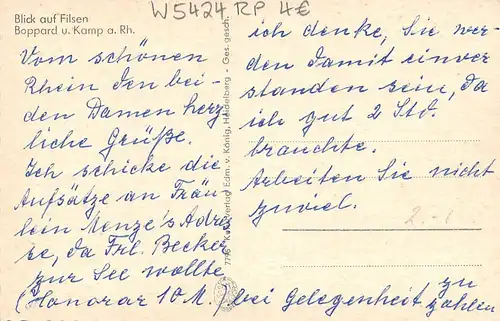 Blick auf Filsen
Boppard u. Kamp a. Rh.
W5424 RP 4€
Vom schönen
Rhein den bei-
den Damen herz-
liche Grüße.
Ich schicke die
Aufsätze an Fräu-
lein Menze's Adres-
se, da Frl. Becker
zur See wollte
(Honorar 10 M. bei Gelegenheit zu zahlen
ich denke, Sie wer-
den damit einver
standen sein, da
ich gut 2 Std.
brauchte.
Arbeiten Sie nicht
zuviel.
2.-
Edm. v. König, Heidelberg - Ges. gesch.